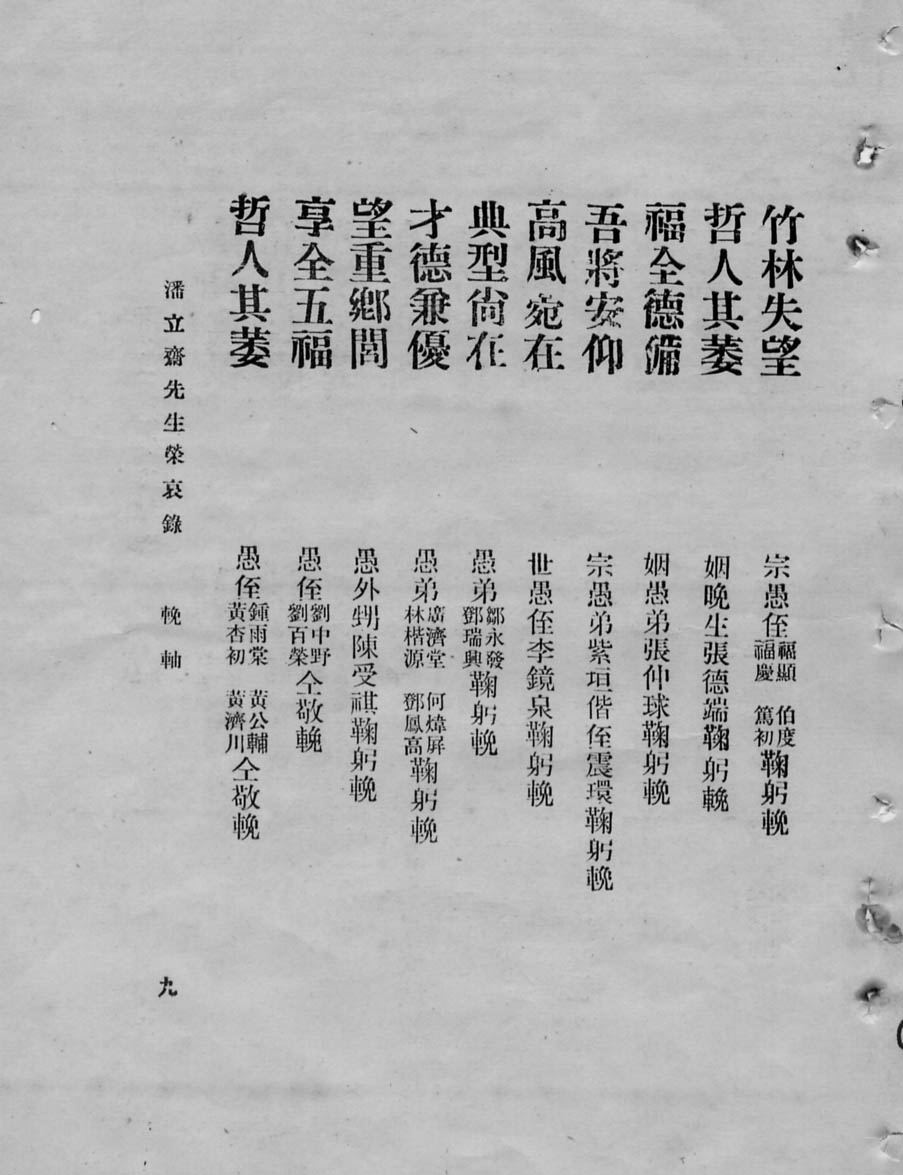 竹林失望　宗愚侄福顯　伯度福慶　篤初鞠躬輓
哲人其萎　姻晚生張德端鞠躬輓
福全德備　姻愚弟張仲球鞠躬輓
吾將安仰　宗愚弟紫垣偕侄震環鞠躬輓
高風宛在　世愚侄李鏡泉鞠躬輓
典型尙在　愚弟鄒永發鄧瑞興鞠躬輓
才德兼優　愚弟廣濟堂　何煒屏林楷源　鄧鳳高鞠躬輓
望重鄕閭　愚外甥陳受祺鞠躬輓
享全五福　愚侄劉中野劉百榮仝敬輓
哲人其萎　愚侄鍾雨棠　黃公輔黃杏初　黃濟川仝敬輓
潘立齋先生榮哀錄　輓軸　九